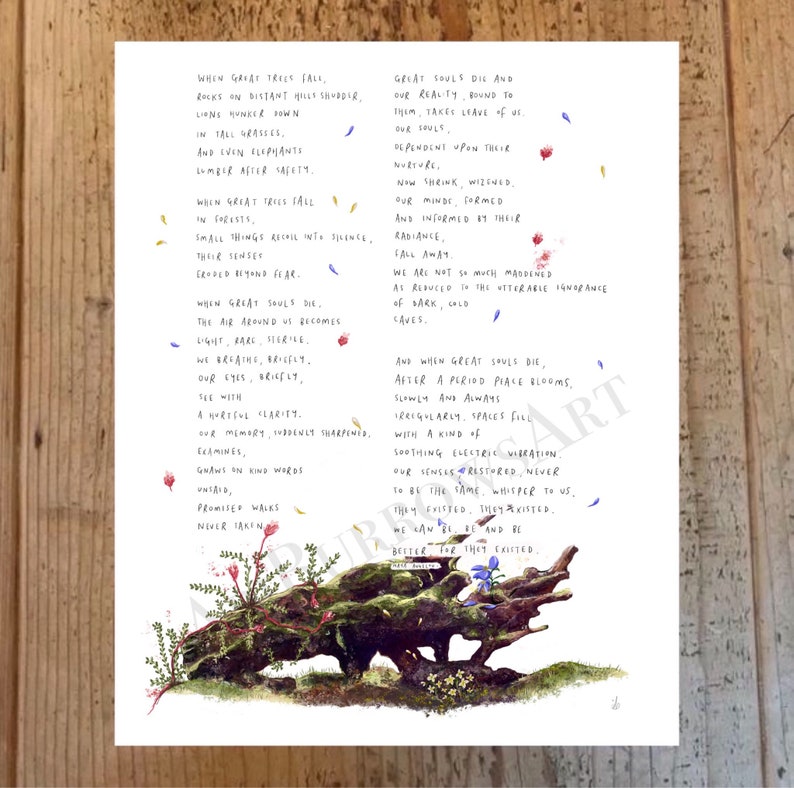 WHEN GREAT TREES FALL,
ROCKS ON DISTANT HILLS SHUDDER,
LIONS HUNKER DOWN
IN TALL GRASSES,
AND EVEN ELEPHANTS
LUMBER AFTER SAFETY.
WHEN GREAT TREES FALL
IN FORESTS,
SMALL THINGS RECOIL INTO SILENCE,
THEIR SENSES
ERODED BEYOND FEAR.
WHEN GREAT SOULS DIE,
THE AIR AROUND US BECOMES
LIGHT, RARE, STERILE.
WE BREATHE, BRIEFLY.
OUR EYES, BRIEFLY,
SEE WITH
A HURTFUL CLARITY.
OUR MEMORY, SUDDENLY SHARPENED,
EXAMINES,
GNAWS ON KIND WORDS
UNSAID,
PROMISED WALKS
NEVER TAKEN.
GREAT SOULS DIE AND
OUR REALITY, BOUND TO
THEM, TAKES LEAVE OF US.
OUR SOULS,
DEPENDENT UPON THEIR
NURTURE,
NOW SHRINK, WIZENED.
OUR MINDS, FORMED
AND INFORMED BY THEIR
RADIANCE,
FALL AWAY.
WE ARE NOT SO MUCH MADDENED
AS REDUCED TO THE UTTERABLE IGNORANCE
OF DARK, COLD
CAVES.
AND WHEN GREAT SOULS DIE,
AFTER A PERIOD PEACE BLOOMS,
SLOWLY AND ALWAYS
IRREGULARLY. SPACES FILL
WITH A KIND OF
SOOTHING ELECTRIC VIBRATION.
OUR SENSES RESTORED, NEVER
TO BE THE SAME, WHISPER TO US,
THEY EXISTED. THEY EXISTED.
WE CAN BE. BE AND BE
BETTER FOR THEY EXISTED.
MAYA ANGELOU